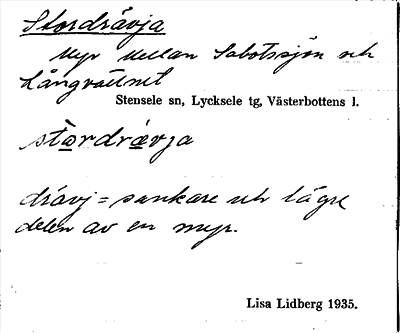 Stordrävja
Myr mellan Sabotsjön och
Långvattnet
Stensele sn, Lycksele tg, Västerbottens l.
stordrävja
drävj = sankare och lägre
delen av en myr.
Lisa Lidberg 1935.